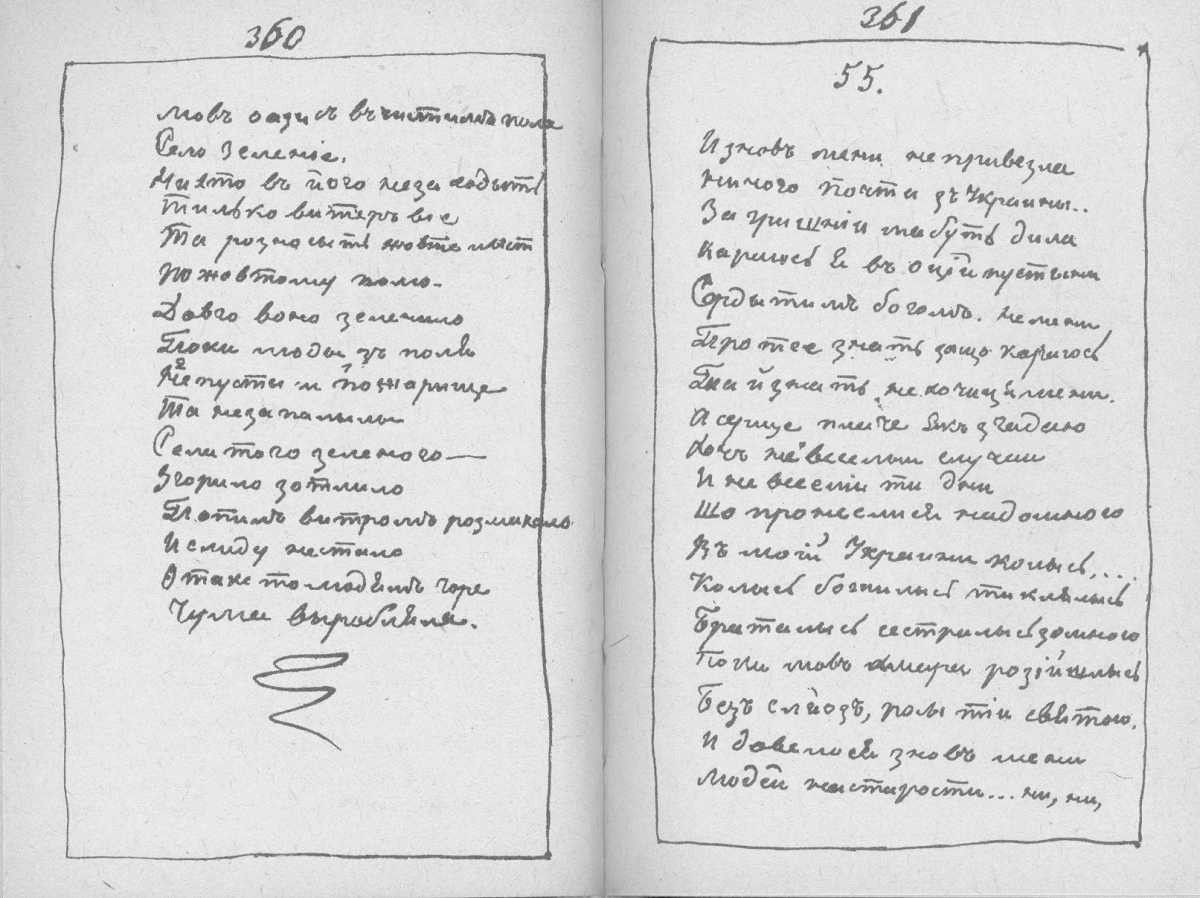 360
мовъ оазисъ въ чистимъ поли
Село зеленіе.
Нихто въ його незаходыть
Тилько витеръ віе
Та розносыть жовте лист
По жовтому полю.
Довго воно зеленило
Поки люды зъ поля
Непустили пожарище
Та незапалылы
Села того зеленого —
Згорило зотлило
Потимъ витромъ розмахало
И слиду нестало
Отаке то людямъ горе
Чума выробляла.
361
55.
И зновъ мени непривезла
Ничого почта зъ Украины..
За гришніи мабуть дила
Караюсь я въ оцій пустыни
Сердытимъ богомъ. Немени
Протее знать защо караюсь
Та й знать нехочиця мени.
А серце плаче якъ згадаю
Хочъ невеселыи случаи
И невеселіи ти дни
Що пронеслися надомною
Въ моій Украини колысь....
Колысь божилысь та клялысь
Браталысь сестрылысь зомною
Поки мовъ хмара розійшлысь
Безъ слйозъ, росы тіи святои.
И довелося зновъ мени
Людей настарости... ни, ни,